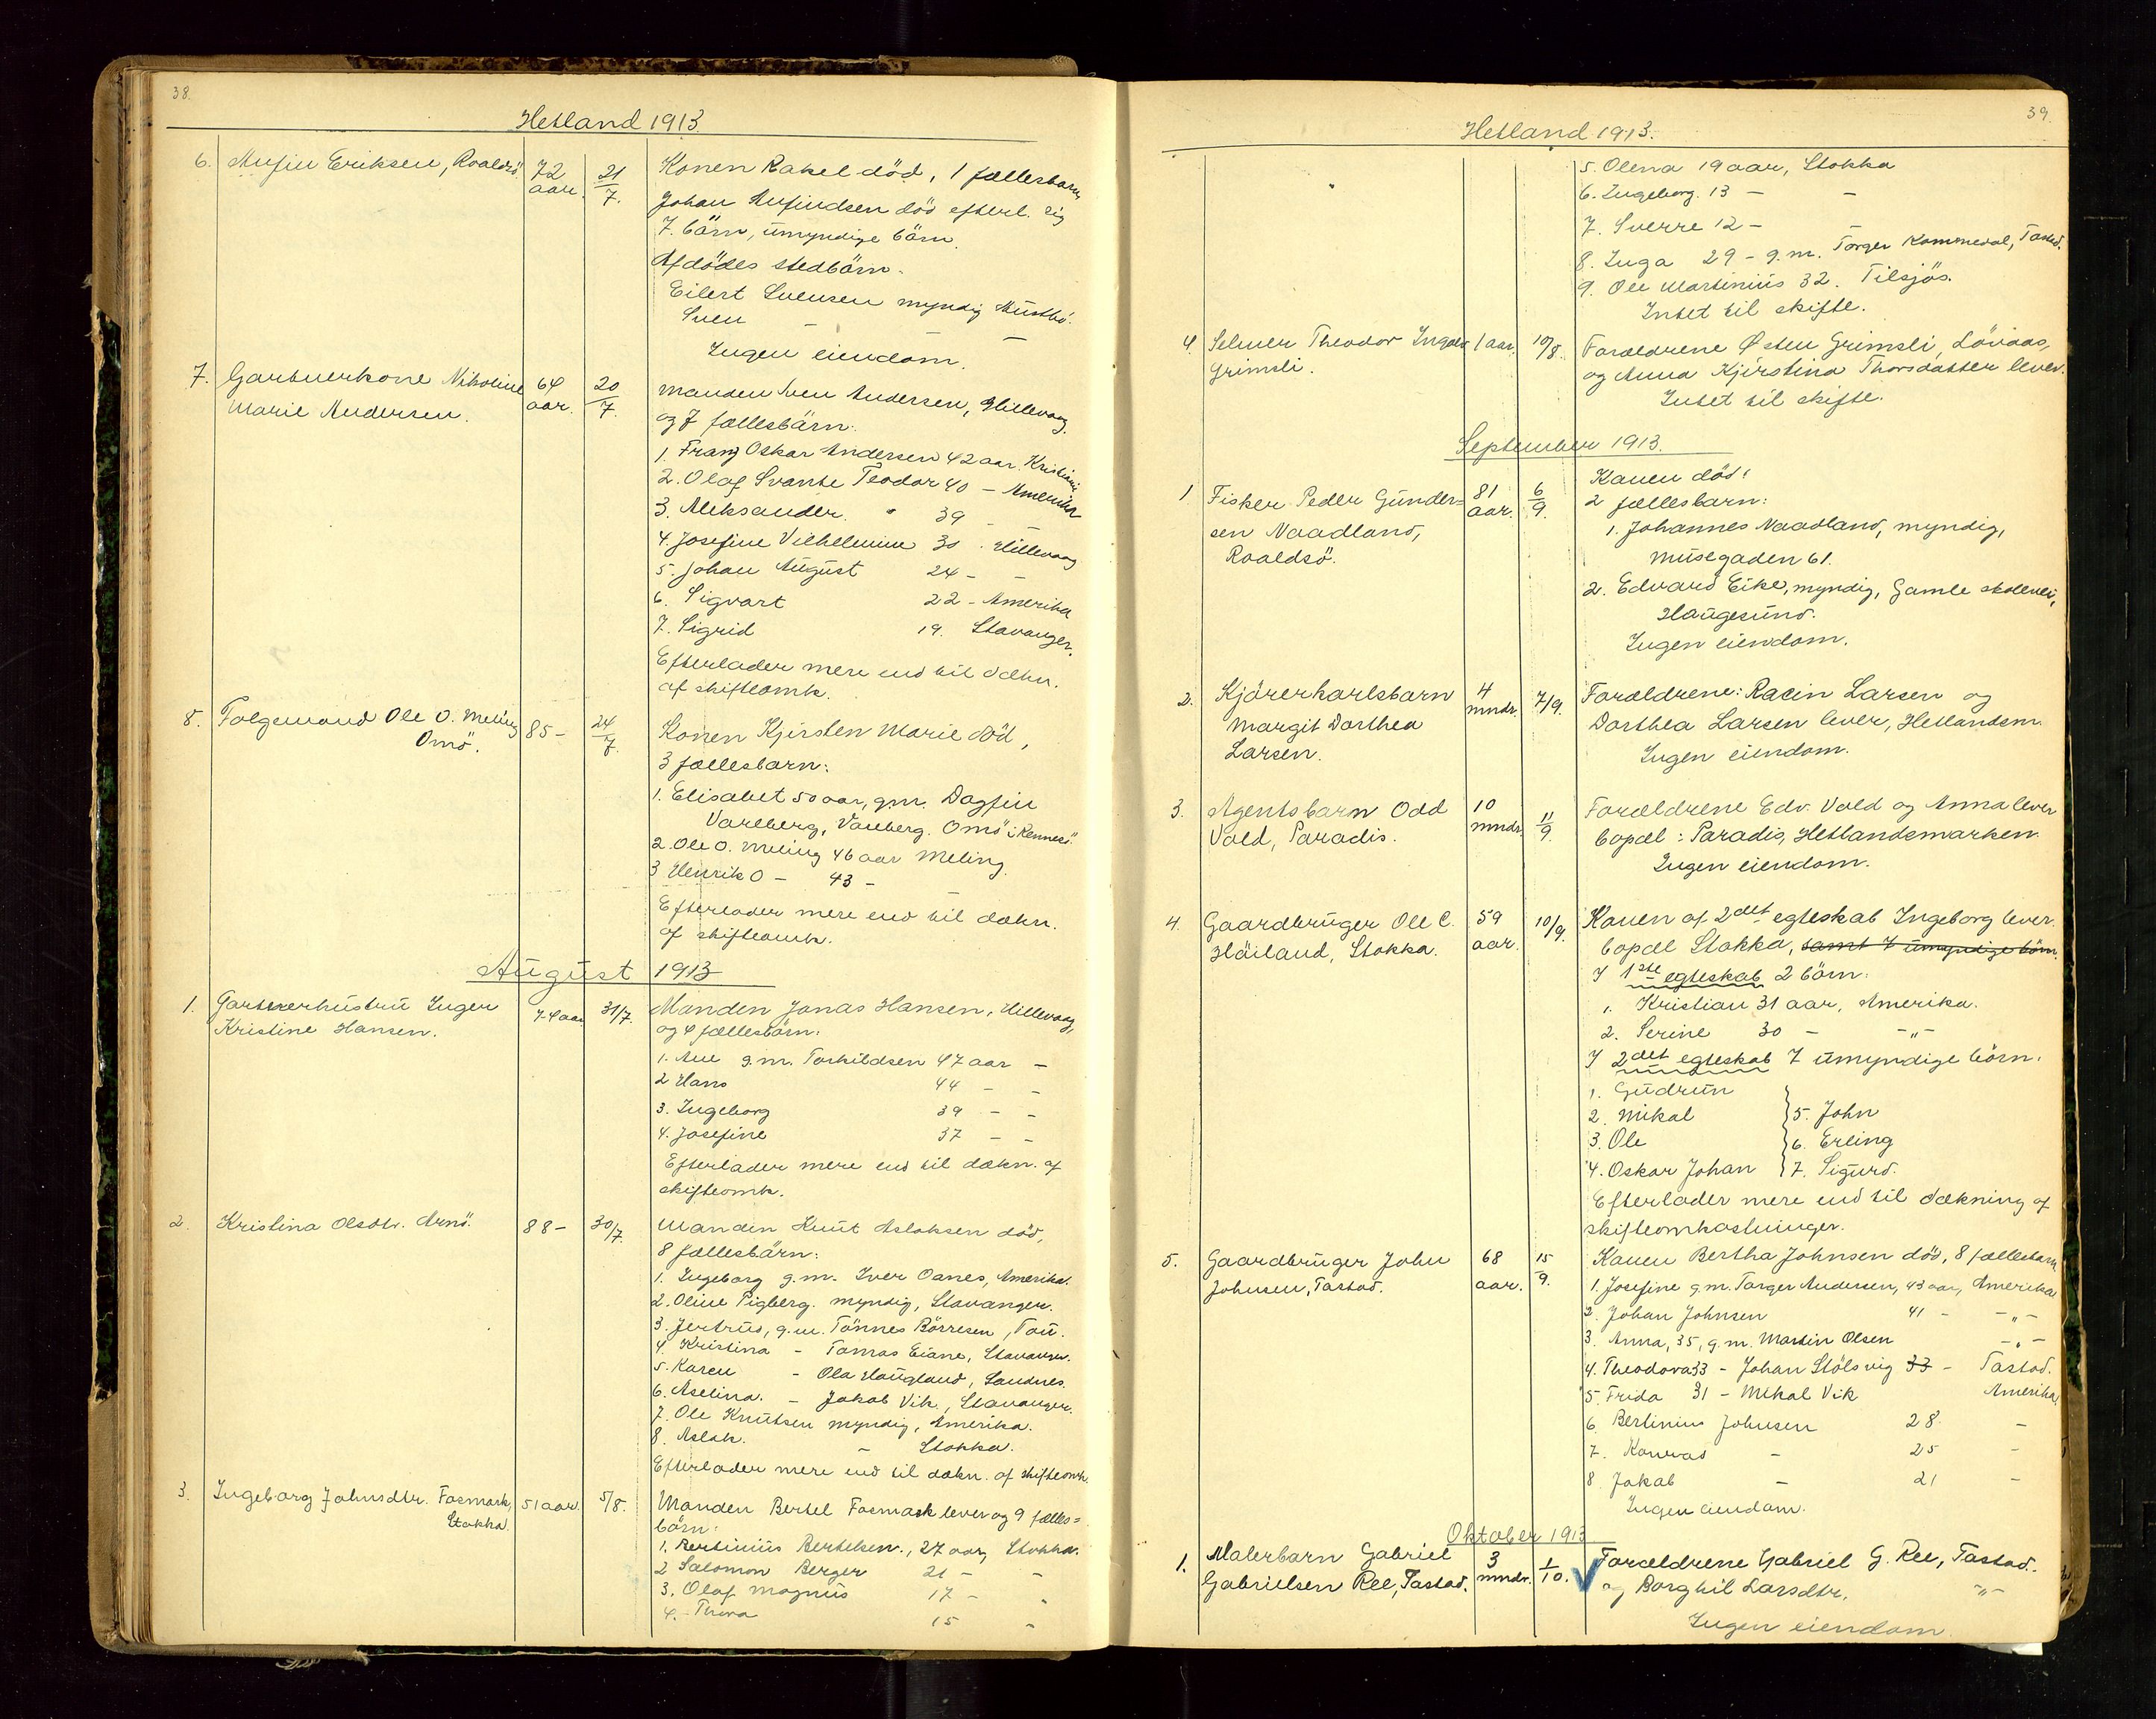 38.
Hetland 1913.
6. Anfin Eriksen, Roaldsö 72 aar. 21/7. Konen Rakel död, 1 fællesbarn
Johan Anfindsen död efterl. sig
7 börn, umyndige börn.
Afdödes stedbörn.
Eilert Svensen myndig
Sven — —
Ingen eiendom.
7. Garbnerkone Nikoline 64 aar. 20/7. Manden Sven Andersen, Hillevaag
Marie Andersen. og 7 fællesbärn:
1. Franz Oskar Andersen 42 aar. Kristiania
2. Olaf Svante Teodor 40 — Amerika
3. Aleksander 39 — —
4. Josefine Vilhelmine 30 . Hillevaag
5. Johan August 24 — —
6. Sigvart 22 — Amerika
7. Sigrid 19. Stavanger.
Efterlader mere end til dækn.
af skifteomk.
8. Folgemand Ole O. Meling 85 — 24/7. Konen Kjirsten Marie död,
Omö. 3 fællesbarn:
1. Elisabet 50 aar, g.m. Dagfin
Varberg, Vauberg. Omö i Rennesö.
2. Ole O. Meling 46 aar Meling.
3 Henrik O — 43 — —
Efterlader mere end til dækn.
af skifteomk.
August 1913
1. Gartnerhustru Inger 74 aar 31/7. Manden Jonas Hansen, Hillevaag,
Kristine Hansen. og 4 fællesbörn:
1. Ane g.m. Torkildsen 47 aar —
2 Hans 44 — —
3. Ingeborg 39 — —
4. Josefine 37 — —
Efterlader mere end til dækn. af
skifteomk.
2. Kristina Olsdtr. Arnö. 88 — 30/7. Manden Knut Aslaksen död,
8 fællesbärn:
1. Ingeborg g.m. Iver Oanes, Amerika.
2. Oline Tigberg. myndig, Stavanger.
3. Jertrud, g.m. Tönnes Börresen, Tau.
4. Kristina — Tomas Eiane, Stavanger.
5. Karen — Ola Haugland, Sandnes.
6. Aselina. — Jakob Vik, Stavanger.
7. Ole Knutsen myndig, Amerika.
8. Aslak. — Stokka.
Efterlader mere end til dækn. af skifteomk.
3. Ingeborg Johnsdtr. Fosmark, 51 aar. 5/8. Manden Bertel Fosmark lever og 9 fælles=
Stokka. börn:
1. Bertinius Bertelsen., 27 aar, Stokka.
2 Salomon Berger 21 — —
3. Olaf Magnus 17 — -
4. Thora 15 -
39.
Hetland 1913.
5. Olena 19 aar, Stokka
6. Ingeborg. 13 — —
7. Sverre 12 — —
8. Inga 29 — g.m. Torger Kommedal, Tastad.
9. Ole Martinius 32. Tilsjös.
Intet til skifte.
4. Selmer Theodor Ingolv 1 aar. 10/8. Forældrene Östen Grimsli, Lövaas,
Grimsli. og Anna Kjirstina Thorsdatter lever.
Intet til skifte.
September 1913.
1 Fisker Peder Gunder= 81 aar. 6/9. Konen död!
sen Naadland, 2 fællesbarn:
Roaldsö. 1. Johannes Naadland, myndig,
Musegaden 61.
2. Edvard Eike, myndig, Gamle skolevei,
Haugesund.
Ingen eiendom.
2. Kjörerkarlsbarn 4 mndr. 7/9. Forældrene: Racin Larsen og
Margit Dorthea Dorthea Larsen lever, Hetlandsm.
Larsen. Ingen eiendom.
3. Agentsbarn Odd 10 mndr 11/9. Forældrene Edv. Vold og Anna lever
Vold, Paradis. bopæl: Paradis, Hetlandsmarken.
Ingen eiendom.
4. Gaardbruger Ole C. 59 aar. 10/9. Konen af 2det egteskab Ingeborg lever.
Höiland, Stokka. bopæl Stokka, samt 7 umyndige börn.
I 1ste egteskab 2 börn:
1. Kristian 31 aar, Amerika.
2. Serine 30 — —„—
I 2det egteskab 7 umyndige börn.
1. Gudrun
2. Mikal 5. John
3. Ole 6. Erling
4. Oskar Johan 7. Sigurd.
Efterlader mere end til dækning af
skifteomkostninger.
5. Gaardbruger John 68 aar. 15/9. Konen Bertha Johnsen död, 8 fællesbarn
Johnsen, Tastad. 1. Josefine g.m. Torger Andersen, 43 aar, Amerika
2. Johan Johnsen 41 — —„—
3. Anna, 35, g.m. Martin Olsen —„—
4. Theodora 33 — Johan Stölsvig 33 — Tastad.
5. Frida 31 — Mikal Vik Amerika
6. Bertinius Johnsen 28. —
7. Konrad — 25 —
8 Jakob — 21 —
Ingen eiendom.
Oktober 1913
1. Malerbarn Gabriel 3 mndr. 1/10. Forældrene Gabriel G. Ree, Tastad.
Gabrielsen Ree, Tastad. og Borghil Larsdtr. —„—
Ingen eiendom